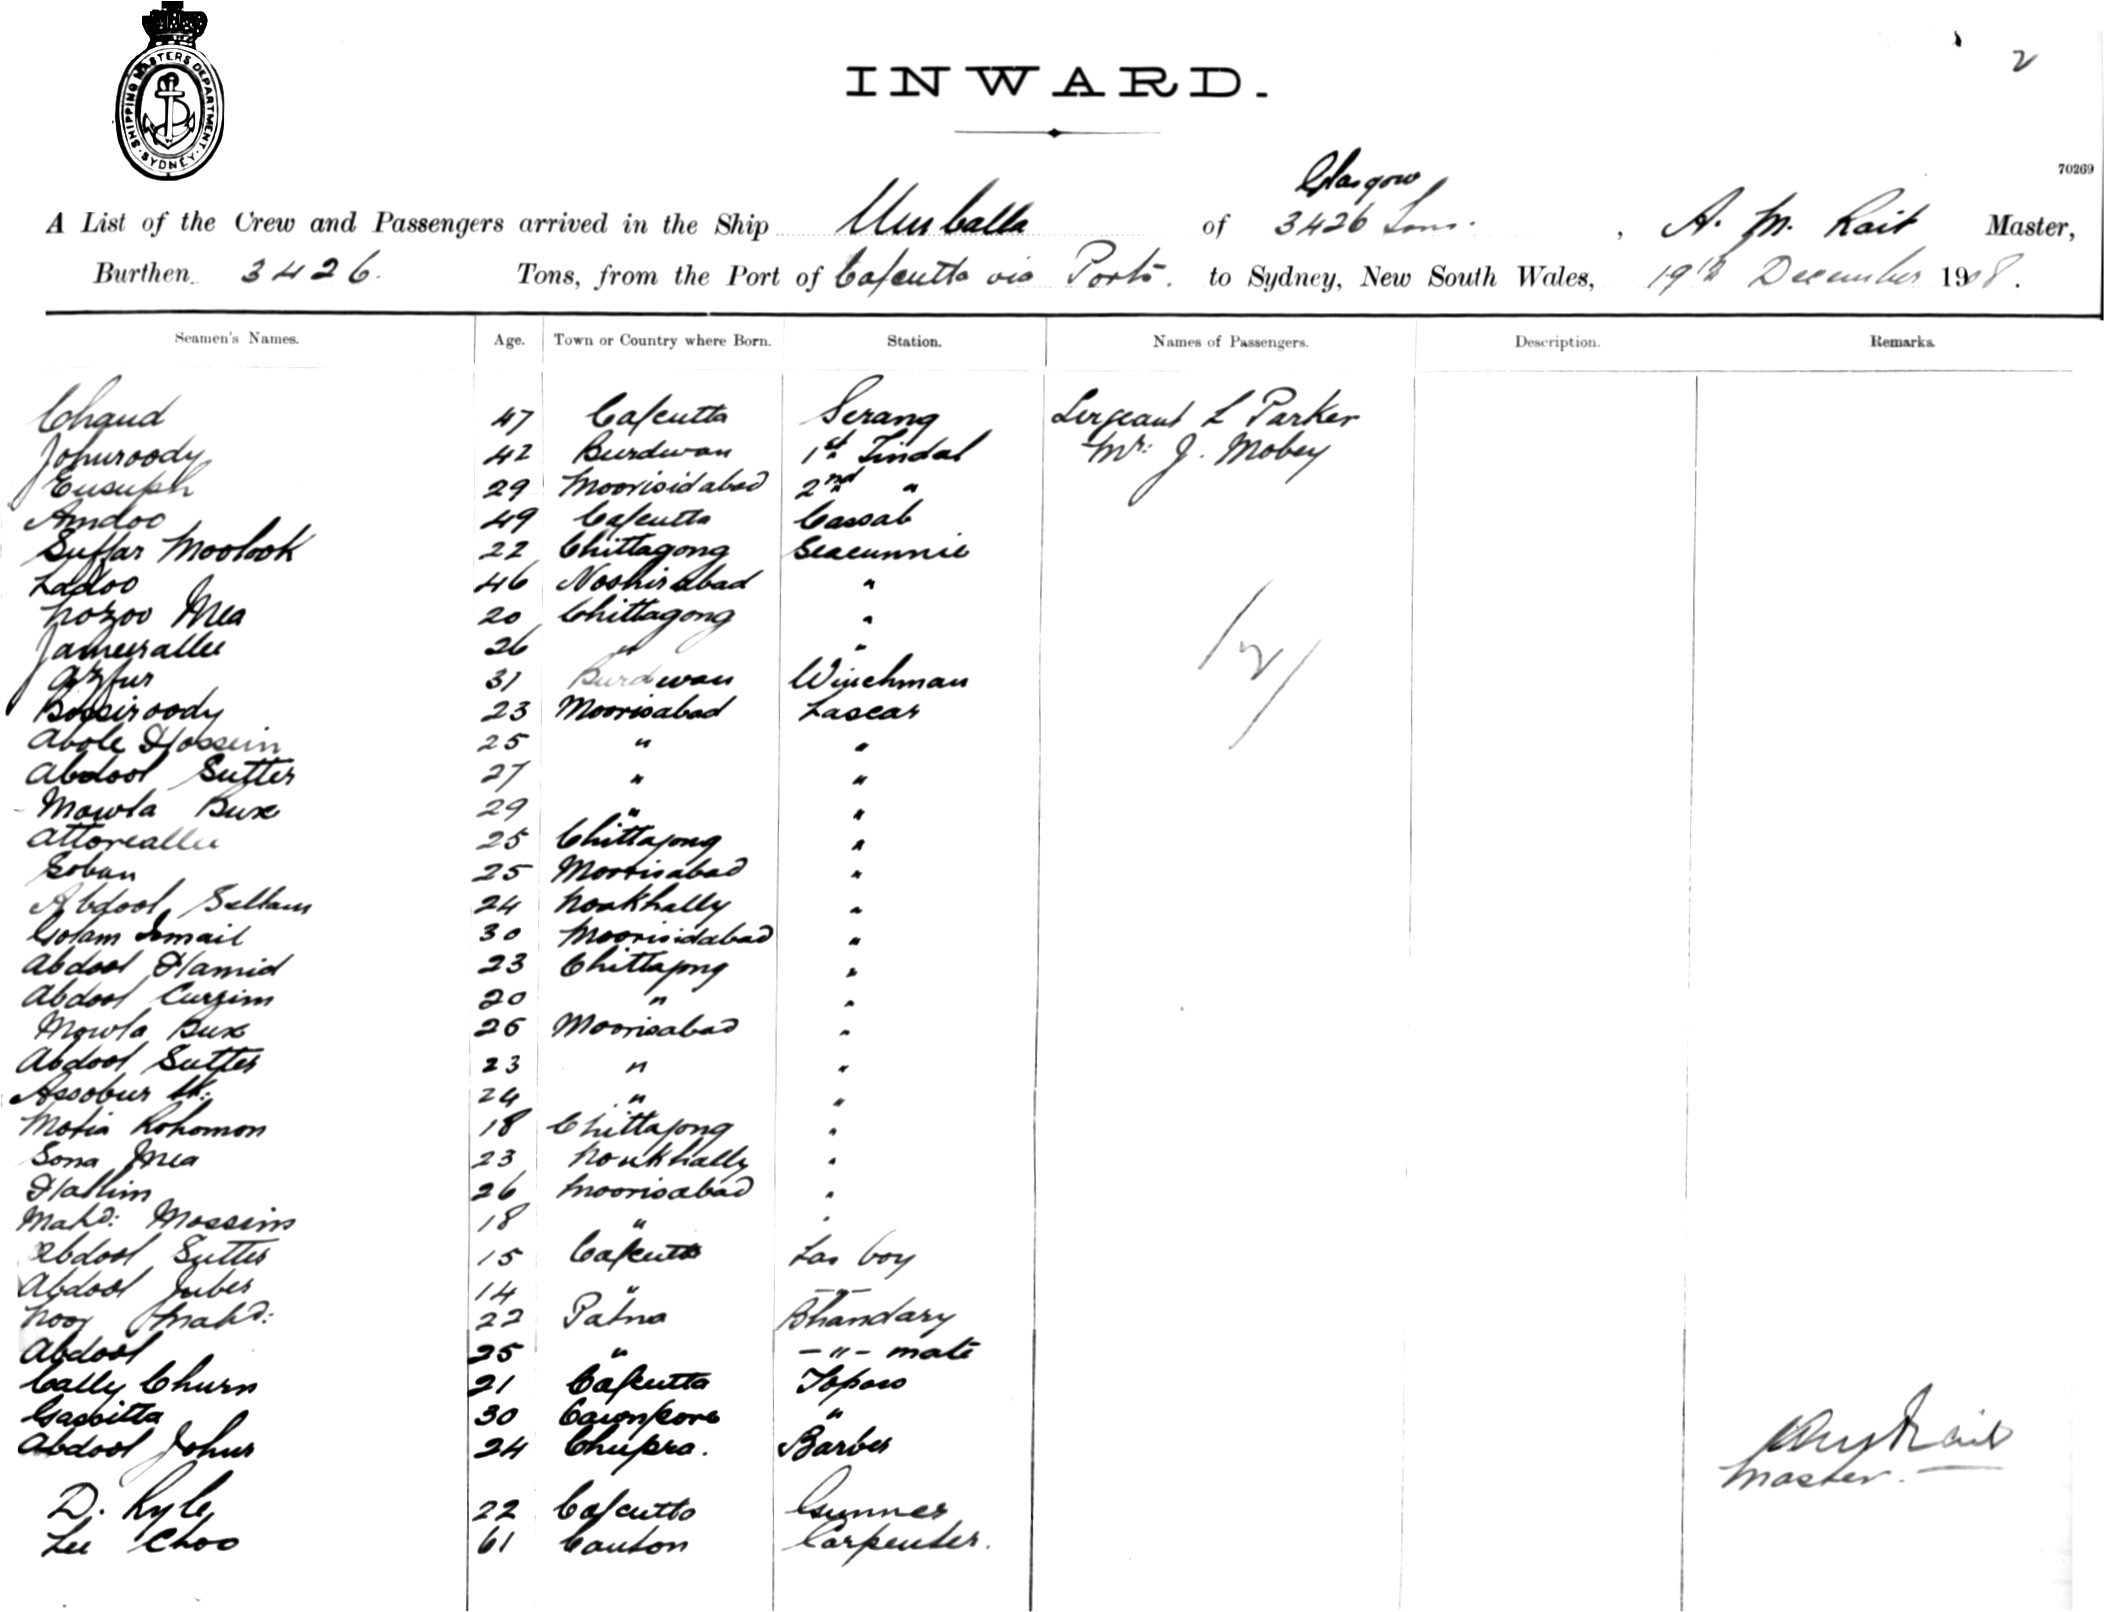 SHIPPING MASTERS DEPARTMENT. SYDNEY
2
INWARD.
70269
Glasgow
A List of the Crew and Passengers arrived in the Ship Umballa of 3426 Tons. , A. M. Rait Master,
Burthen 3426. Tons, from the Port of Calcutta via Ports. to Sydney, New South Wales, 19th December 1908.
Seamen's Names. Age. Town or Country where Born. Station. Names of Passengers. Description. Remarks.
Chand 47 Calcutta Serang Sergeant L Parker
Johuroody 42 Burdwan 1st Tindal Mr: J. Mobey
Eusuph 29 Moorisidabad 2nd "
Amdoo 49 Calcutta Cassab
Suffar Moolook 22 Chittagong Seacunnie
Ladoo 46 Noshirabad "
Nozoo Mea 20 Chittagong "
Jameerallee 26 " "
Azfur 31 Burdwan Winchman
Bossiroody 23 Moorisabad Lascar
Abole Hossein 25 " "
Abdool Sutter 27 " "
Mowla Bux 29 " "
Attoreallee 25 Chittagong "
Soban 25 Moorisabad "
Abdool Sellam 24 Noakhally "
Golam Ismail 30 Moorisidabad "
Abdool Hamid 23 Chittagong "
Abdool Currim 20 " "
Mowla Bux 26 Moorisabad "
Abdool Sutter 23 " "
Assobur Sk: 24 " "
Motia Rohomon 18 Chittagong "
Sona Mea 23 Noukhally "
Hallim 26 Moorisabad "
Mahd: Mossim 18 " "
Abdool Sutter 15 Calcutta Las boy
Abdool Juber 14 " -"-
Noor Mahd: 22 Patna Bhandary
Abdool 25 " -"- mate
Cally Churn 21 Calcutta Topass
Gassitta 30 Cawnpore "
Abdool Johur 24 Chupra. Barber
D. Kyle 22 Calcutta Gunner
Lee Choo 61 Canton Carpenter.
/2/
A M Rait
Master.